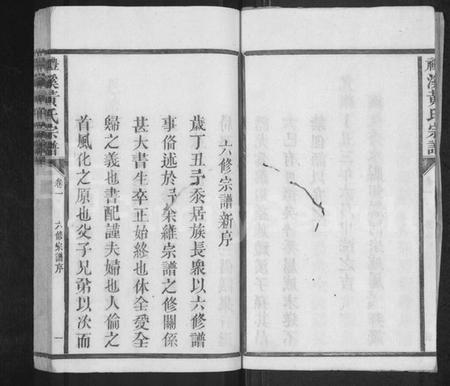 禮溪黃氏宗譜
六修宗譜新序
歲丁丑予忝居族長衆以六修譜
事俻述於予余維宗譜之修關係
甚大書生卒正始終也休全愛全
歸之義也書配謹夫婦也人倫之
首風化之原也父子兄弟以次而
禮溪黃氏宗譜
卷一
六修宗譜序
一